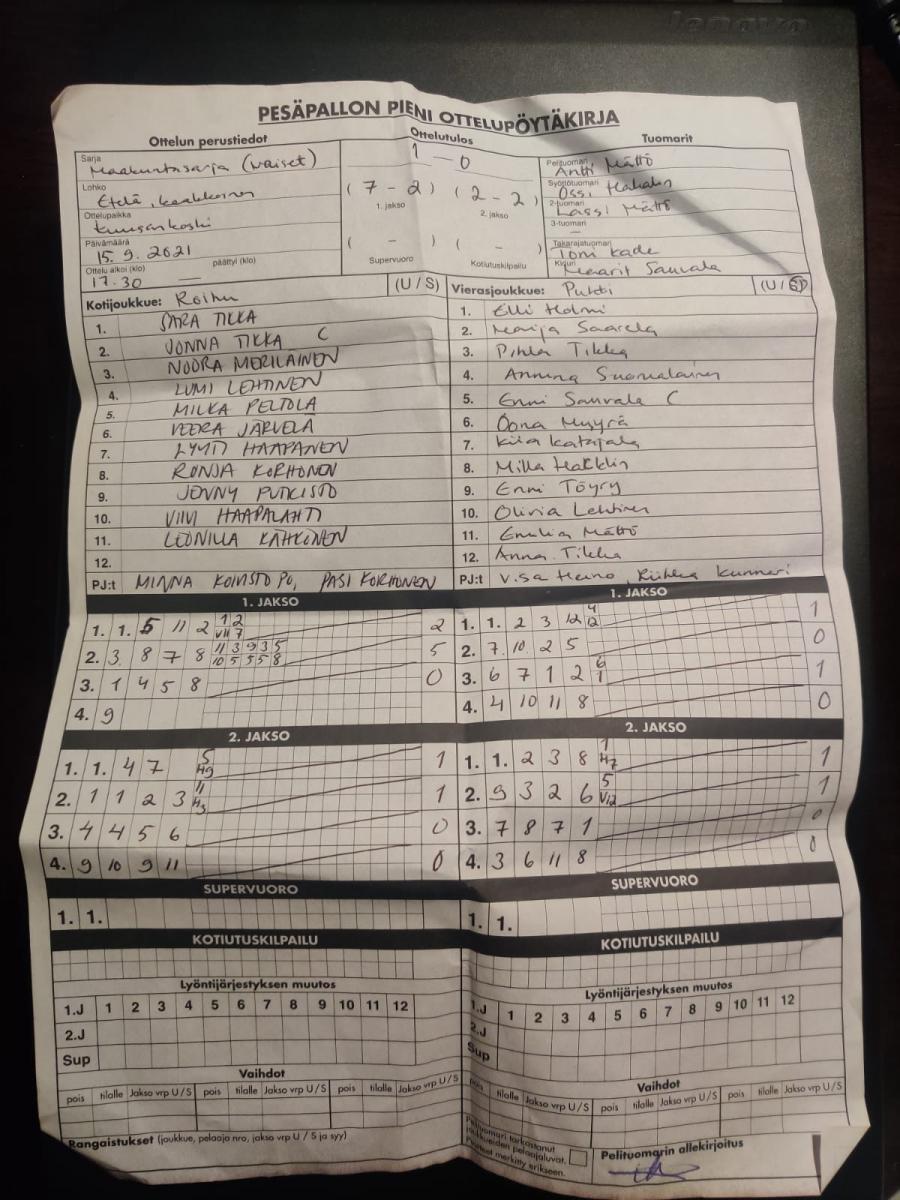 lenovo
PESÄPALLON PIENI OTTELUPÖYTÄKIRJA
Ottelun perustiedot
Ottelutulos
Tuomarit
Sarja
Maakuntasarja (naiset)
Lohko
Etelä, kaakkoinen
Ottelupaikka
Kuusankoski
Päivämäärä
15.9.2021
Ottelu alkoi (klo) päättyi (klo)
17.30 —
1 — 0
(7 - 2) (2 - 2)
1. jakso 2. jakso
( - ) ( - )
Supervuoro Kotiutuskilpailu
Pelituomari
Antti Mättö
Syöttötuomari
Ossi Hakala
2-tuomari
Lassi Mättö
3-tuomari
—
Takarajatuomari
Toni Kade
Kirjuri
Maarit Sauvala
Kotijoukkue: Roihu (U / S)
1. SARA TIKKA
2. JONNA TIKKA C
3. NOORA MERILAINEN
4. LUMI LEHTINEN
5. MILKA PELTOLA
6. VEERA JÄRVELÄ
7. LYYTI HAAPANEN
8. RONJA KORHONEN
9. JENNY PUTKISTO
10. VIIVI HAAPALAHTI
11. LEONILLA KÄHKÖNEN
12.
PJ:t MINNA KOIVISTO PO, PASI KORHONEN
Vierasjoukkue: Puhti (U / S)
1. Elli Holmi
2. Marija Saarela
3. Pihla Tikka
4. Anniina Suomalainen
5. Enni Sauvala C
6. Oona Myyrä
7. Kiia Katajala
8. Milla Hakklin
9. Enni Töyry
10. Olivia Lehtinen
11. Emilia Mättö
12. Anna Tikka
PJ:t Visa Heino, Riikka Kunnari
1. JAKSO
1. 1. 5 11 2 1 2 2
VII 7
2. 3 8 7 8 11 3 9 3 5 5
10 5 5 5 8
3. 1 4 5 8 0
4. 9
1. JAKSO
1. 1. 2 3 12 4 1
12
2. 7 10 2 5 0
3. 6 7 1 2 6 1
1
4. 4 10 11 8 0
2. JAKSO
1. 1. 4 7 5 1
H9
2. 1 1 2 3 11 1
H3
3. 4 4 5 6 0
4. 9 10 9 11 0
2. JAKSO
1. 1. 2 3 8 1 1
H7
2. 9 3 2 6 5 1
V12
3. 7 8 7 1 0
4. 3 6 11 8 0
SUPERVUORO
1. 1.
SUPERVUORO
1. 1.
KOTIUTUSKILPAILU
KOTIUTUSKILPAILU
Lyöntijärjestyksen muutos
1.J 1 2 3 4 5 6 7 8 9 10 11 12
2.J
Sup
Lyöntijärjestyksen muutos
1.J 1 2 3 4 5 6 7 8 9 10 11 12
2.J
Sup
Vaihdot
pois tilalle Jakso vrp U / S pois tilalle Jakso vrp U / S pois tilalle Jakso vrp U / S
Vaihdot
pois tilalle Jakso vrp U / S pois tilalle Jakso vrp U / S pois tilalle Jakso vrp U / S
Rangaistukset (joukkue, pelaaja nro, jakso vrp U / S ja syy)
Pelituomari tarkastanut
joukkueiden pelaajaluvat.
Puutteet merkitty erikseen.
Pelituomarin allekirjoitus